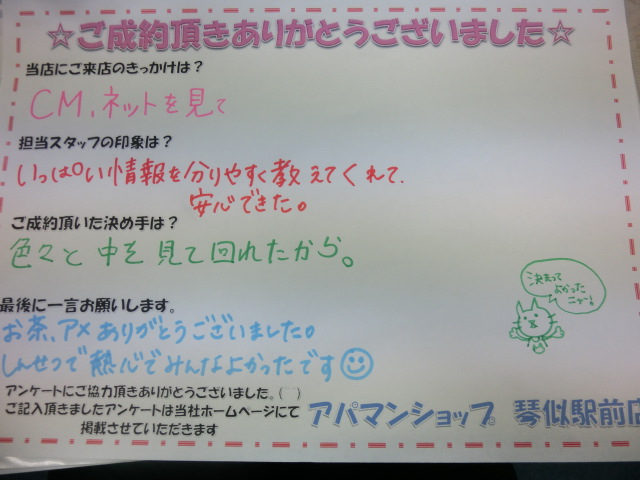 ☆ご成約頂きありがとうございました☆
当店にご来店のきっかけは？
CM、ネットを見て
担当スタッフの印象は？
いっぱい情報を分りやすく教えてくれて、
安心できた。
ご成約頂いた決め手は？
色々と中を見て回れたから。
決まって
よかった
ニャー！
最後に一言お願いします。
お茶、アメありがとうございました。
しんせつで熱心でみんなよかったです
アンケートにご協力頂きありがとうございました。(￣￣)
ご記入頂きましたアンケートは当社ホームページにて
掲載させていただきます
アパマンショップ 琴似駅前店